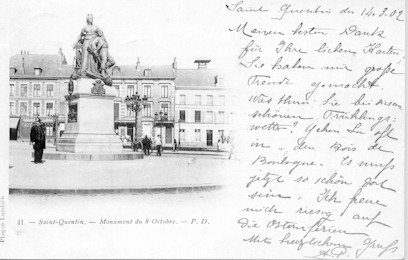 Saint Quentin den 14.3.02
Meinen besten Dank
für Ihre lieben Karten,
Sie haben mir große
Freude gemacht.
Was thun Sie bei diesem
schönen Frühlings-
wetter? Gehen Sie oft
in „den Bois de
Boulogne. Es muß
jetzt so schön dort
sein. Ich freue
mich riesig auf
die Osterferien
Mit herzlichem Gruß
A.P.
41. - Saint-Quentin. - Monument du 8 Octobre. - P. D.